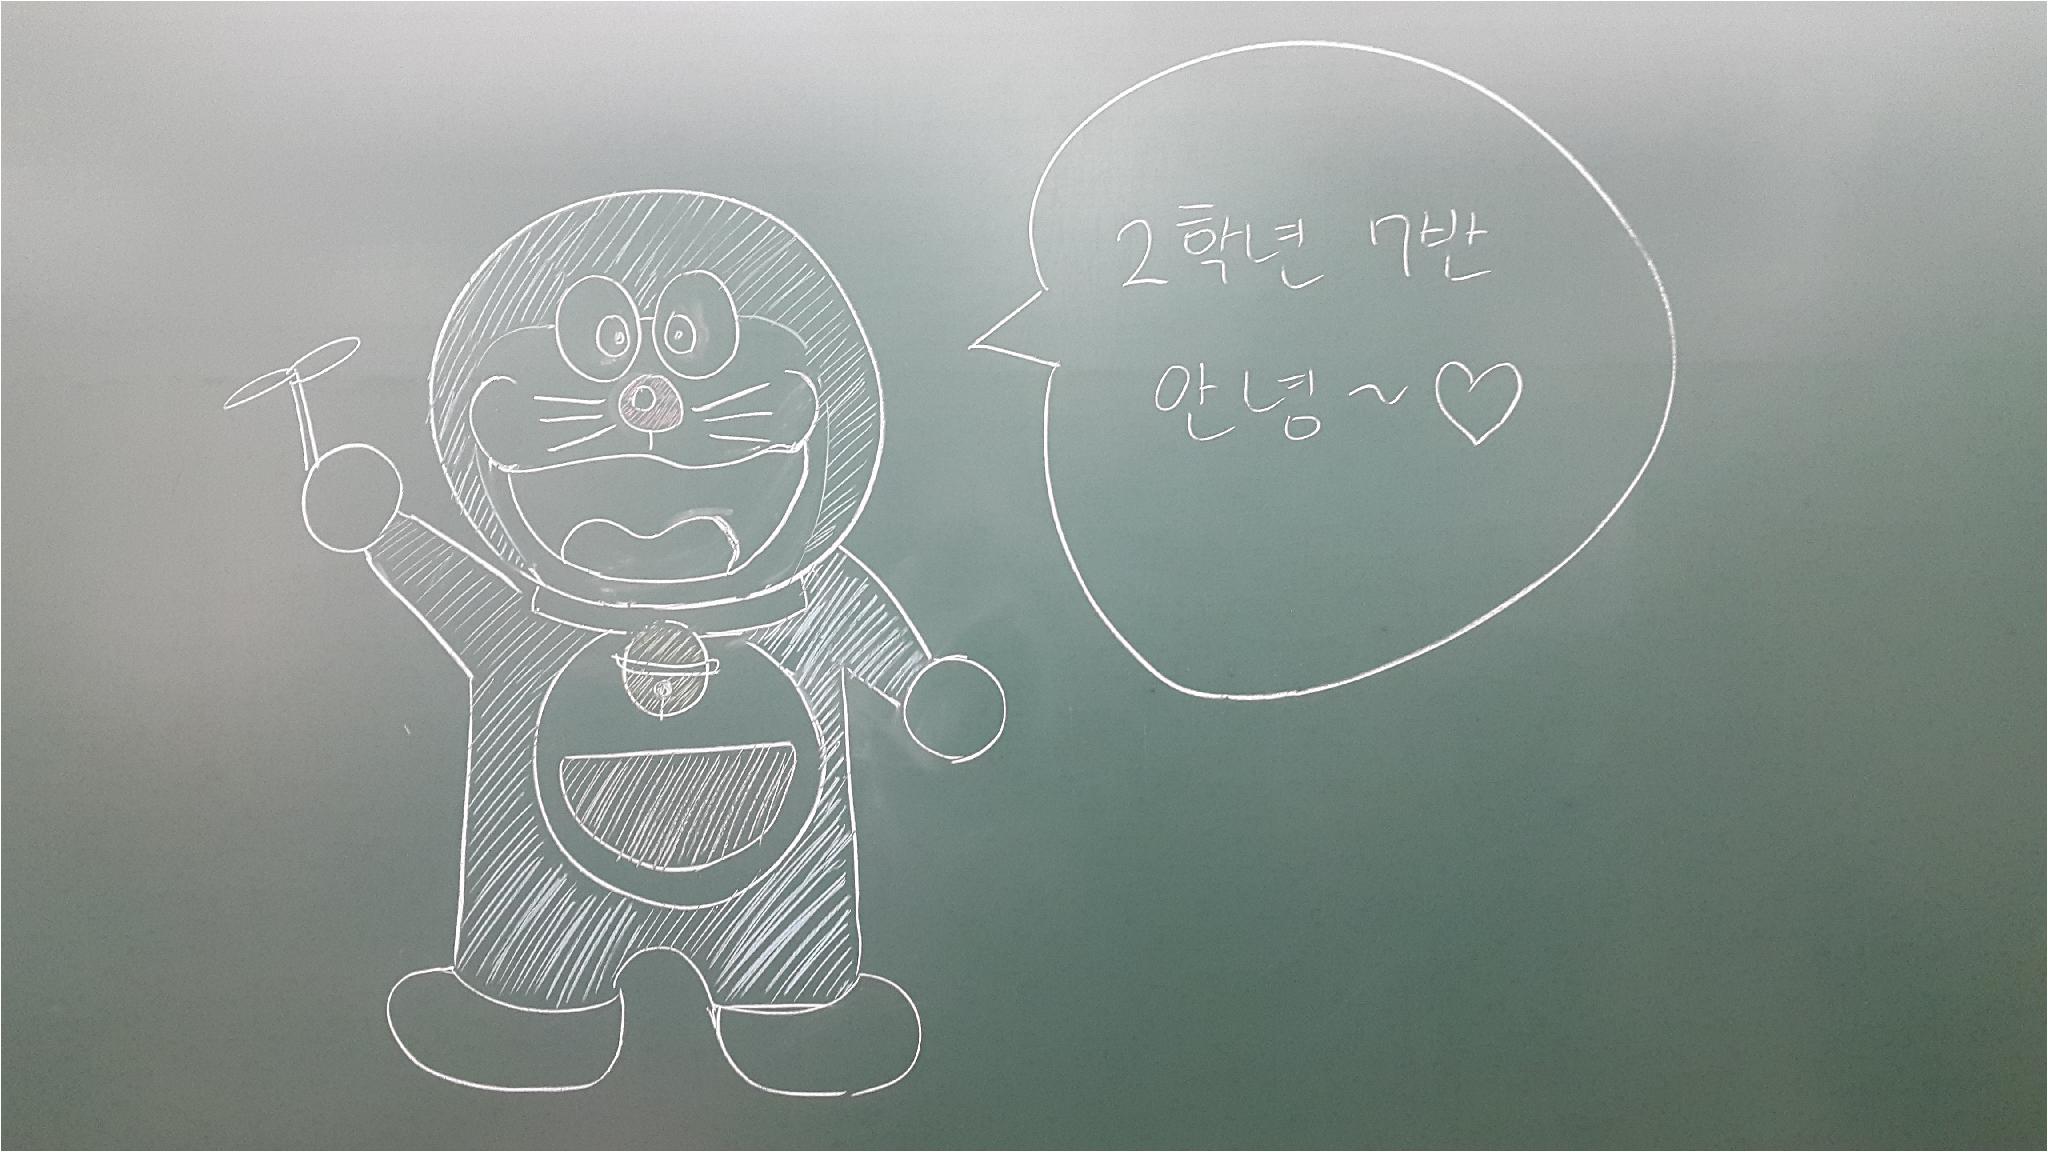 2학년 7반
안녕~♡